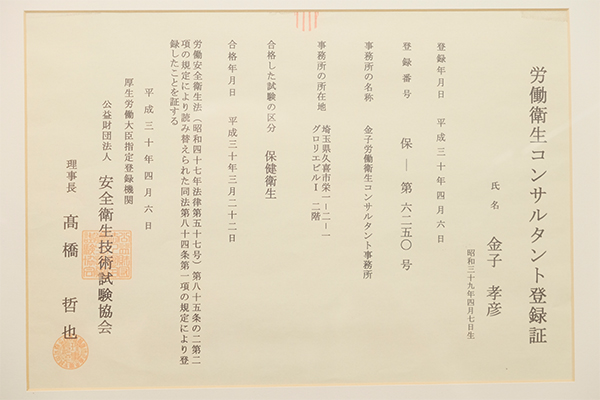 労働衛生コンサルタント登録証
氏名 金子 孝彦
昭和三十九年四月七日生
登録年月日 平成三十年四月六日
登録番号 保―第六二五〇号
事務所の名称 金子労働衛生コンサルタント事務所
事務所の所在地 埼玉県久喜市栄一-二-一
グロリエビルⅠ 二階
合格した試験の区分 保健衛生
合格年月日 平成三十年三月二十二日
労働安全衛生法(昭和四十七年法律第五十七号)第八十五条の二第二
項の規定により読み替えられた同法第八十四条第一項の規定により登
録したことを証する
平成三十年四月六日
厚生労働大臣指定登録機関
公益財団法人 安全衛生技術試験協会
理事長 髙橋 哲也